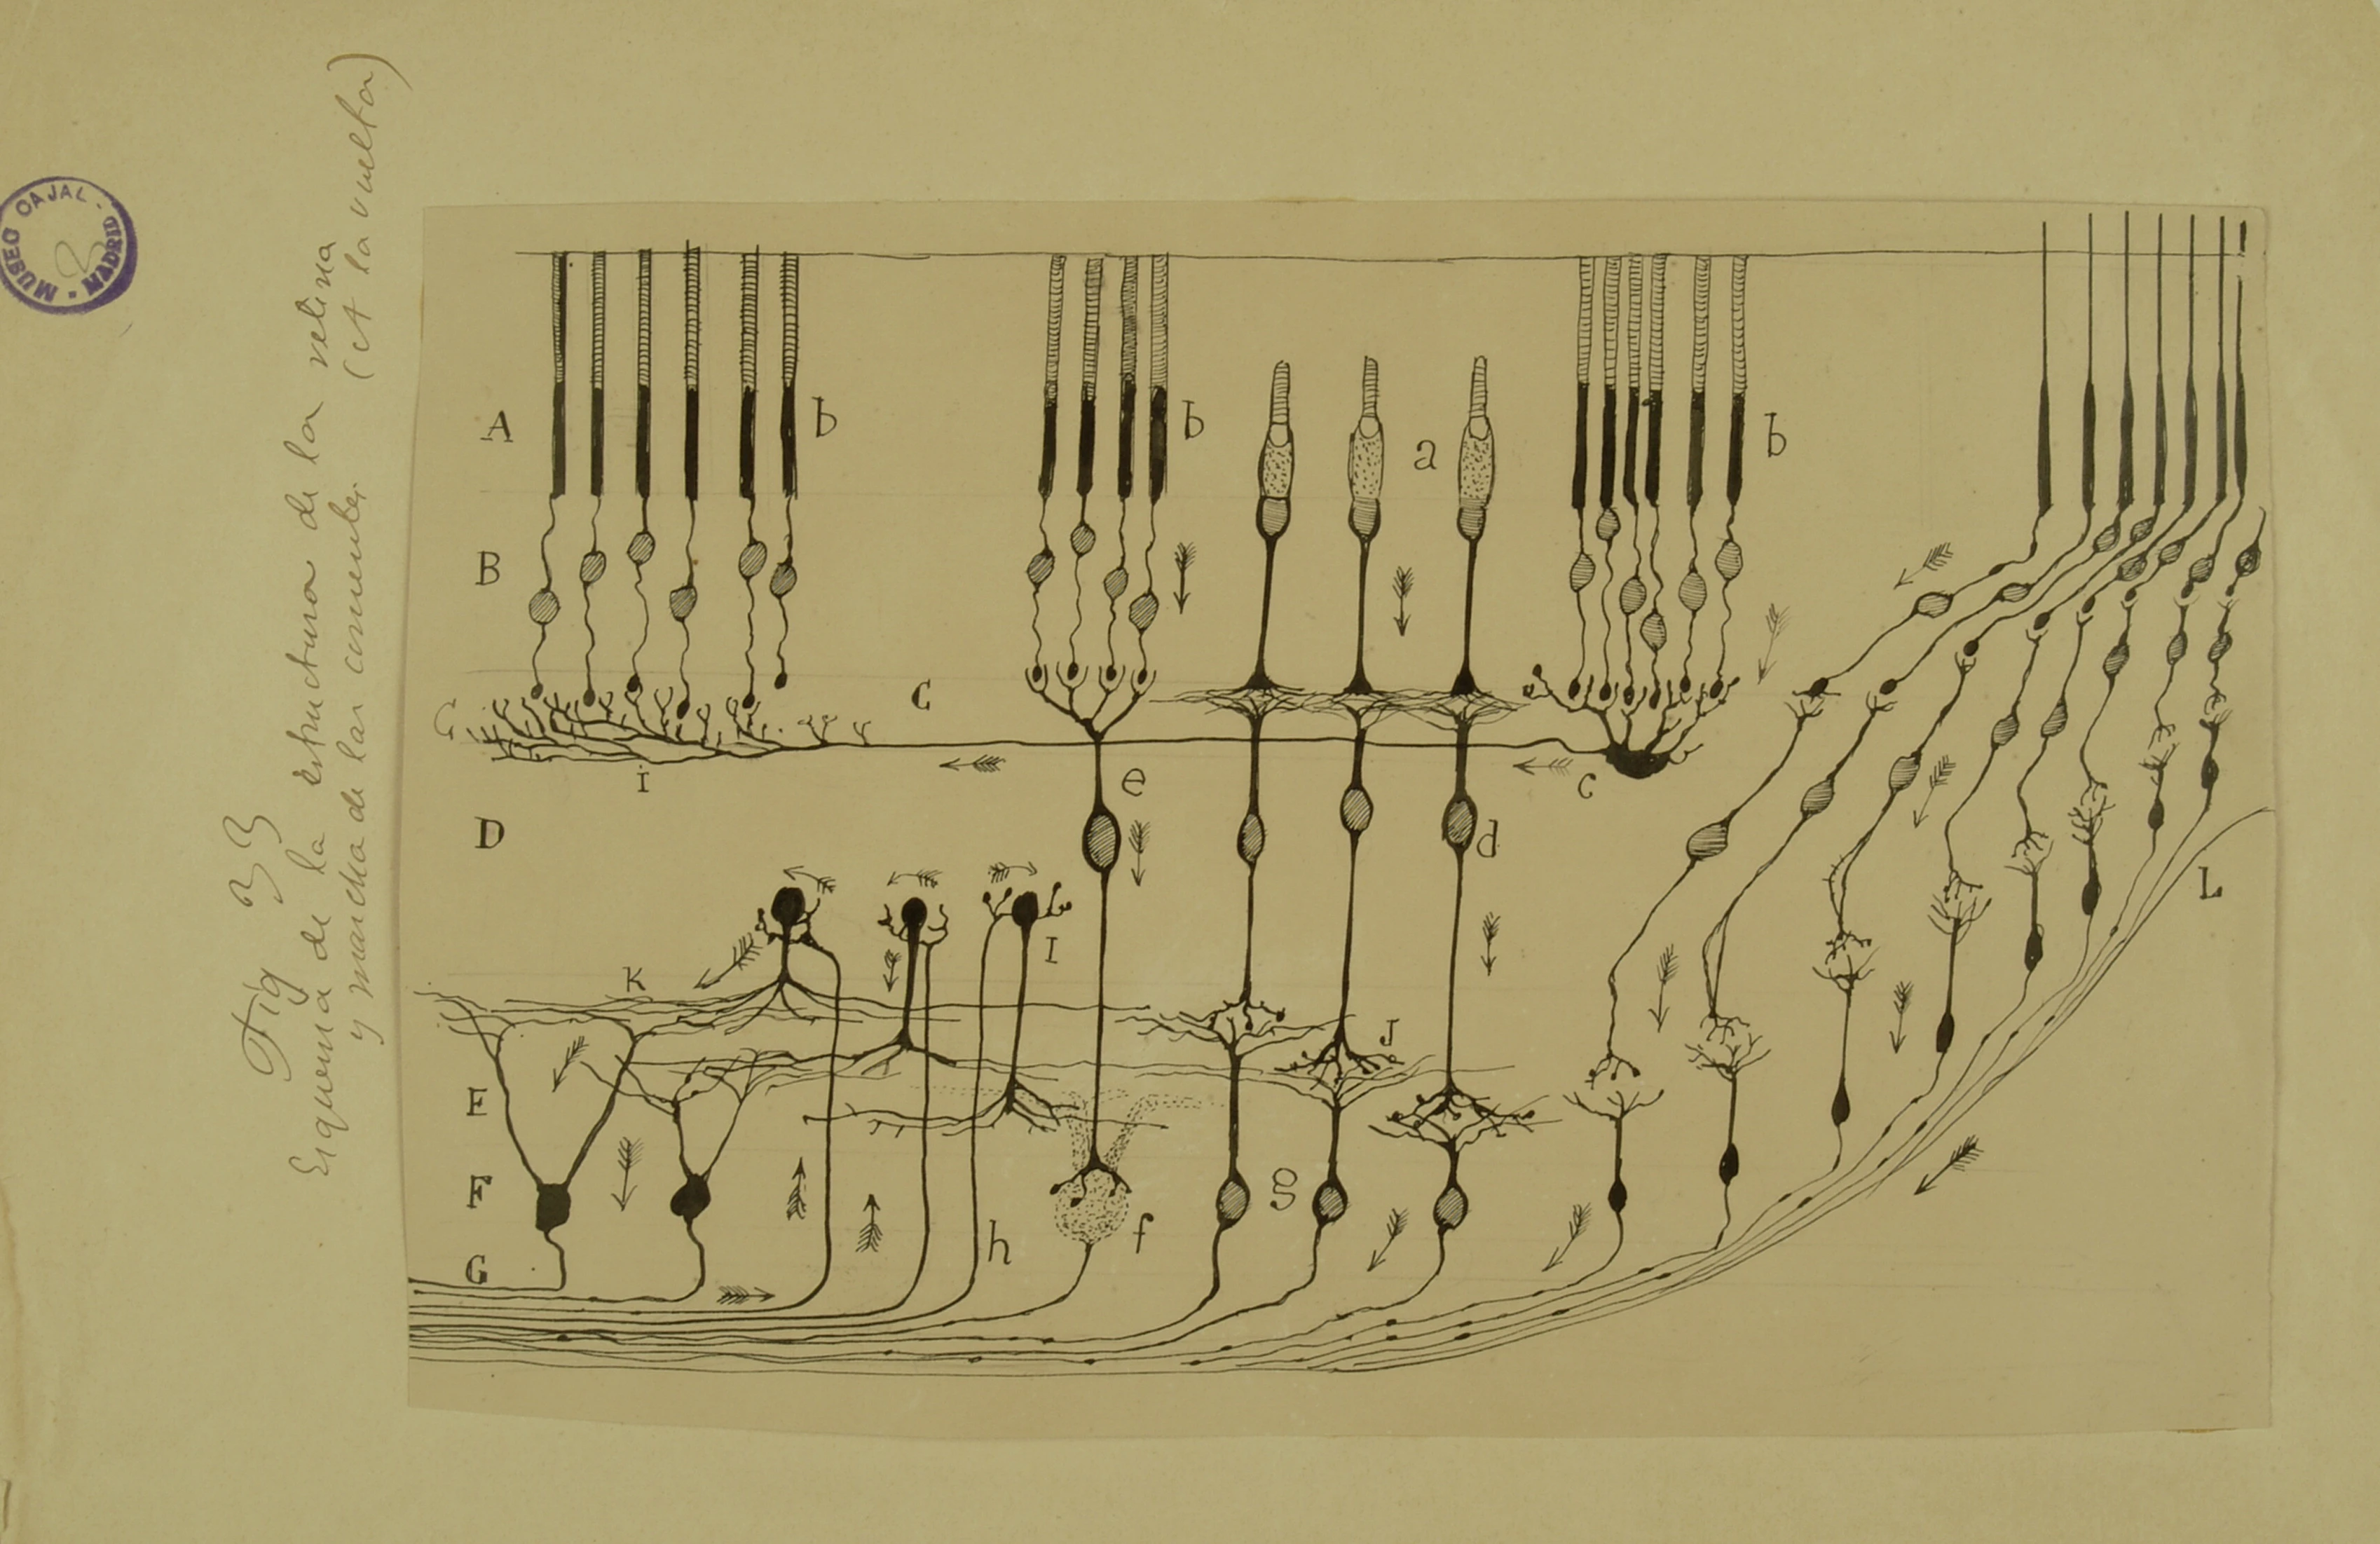 MUSEO CAJAL - MADRID
Fig 33
Esquema de la estructura de la retina
y marcha de las corrientes. (A la vuelta)
A
b
b
a
b
B
C
C
i
e
c
D
d
I
K
J
L
E
F
g
f
h
G